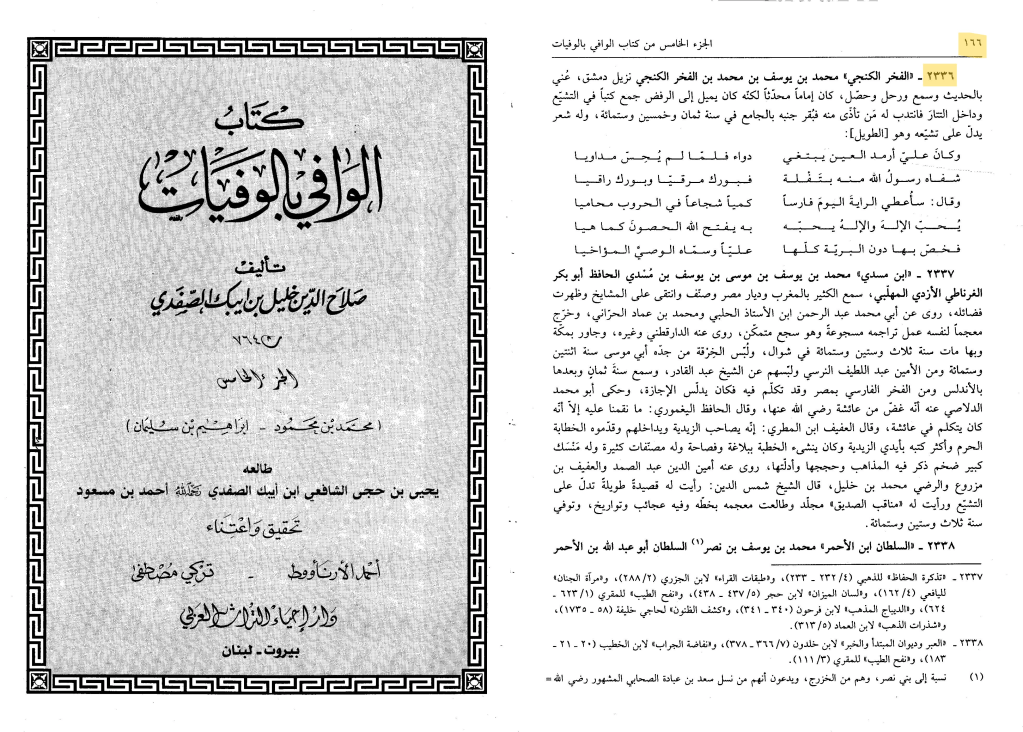 كتاب
الوافي بالوفيات
تأليف
صلاح الدين خليل بن ايبك الصفدي
٧٦٤
الجزء الخامس
(محمد بن محمود - ابراهيم بن سليمان)
طالعه
يحيى بن حجى الشافعي ابن أيبك الصفدي أحمد بن مسعود
تحقيق واعتناء
أحمد الأرناؤوط - تركي مصطفى
دار إحياء التراث العربي
بيروت - لبنان
١٦٦ الجزء الخامس من كتاب الوافي بالوفيات
٢٣٣٦ - «الفخر الكنجي» محمد بن يوسف بن محمد بن الفخر الكنجي نزيل دمشق، عُني
بالحديث وسمع ورحل وحصّل، كان إماماً محدّثاً لكنّه كان يميل إلى الرفض جمع كتباً في التشيّع
وداخل التتار فانتدب له مَن تأذى منه فبُقر جنبه بالجامع في سنة ثمان وخمسين وستمائة، وله شعر
يدلّ على تشيّعه وهو [الطويل]:
وكان عليّ أرمد العين يبتغي دواء فلمّا لم يُحِسّ مداويا
شفاه رسولُ الله منه بتَفْلة فبورك مرقيّا وبورك راقيا
وقال: سأعطي الراية اليوم فارساً كمياً شجاعاً في الحروب محاميا
يُحبّ الإلهَ والإلهُ يحبّه به يفتح الله الحصونَ كما هيا
فخصّ بها دون البريّة كلّها عليّاً وسمّاه الوصيّ المؤاخيا
٢٣٣٧ - «ابن مسدي» محمد بن يوسف بن موسى بن يوسف بن مُسْدي الحافظ أبو بكر
الغرناطي الأزدي المهلّبي، سمع الكثير بالمغرب وديار مصر وصنّف وانتقى على المشايخ وظهرت
فضائله، روى عن أبي محمد عبد الرحمن ابن الأستاذ الحلبي ومحمد بن عماد الحرّاني، وخرّج
معجماً لنفسه عمل تراجمه مسجوعةً وهو سجع متمكّن، روى عنه الدارقطني وغيره، وجاور بمكّة
وبها مات سنة ثلاث وستين وستمائة في شوال، ولُبّس الخِرْقة من جدّه أبي موسى سنة اثنتين
وستمائة ومن الأمين عبد اللطيف النرسي ولبسهم عن الشيخ عبد القادر، وسمع سنة ثمانٍ وبعدها
بالأندلس ومن الفخر الفارسي بمصر وقد تكلّم فيه فكان يدلّس الإجازة، وحكى أبو محمد
الدلاصي عنه أنّه غضّ من عائشة رضي الله عنها، وقال الحافظ اليغموري: ما نقمنا عليه إلاّ أنّه
كان يتكلم في عائشة، وقال العفيف ابن المطري: إنّه يصاحب الزيدية ويداخلهم وقدّموه الخطابة
الحرم وأكثر كتبه بأيدي الزيدية وكان ينشىء الخطبة ببلاغة وفصاحة وله مصنّفات كثيرة وله مَنْسَك
كبير ضخم ذكر فيه المذاهب وحججها وأدلّتها، روى عنه أمين الدين عبد الصمد والعفيف بن
مزروع والرضي محمد بن خليل، قال الشيخ شمس الدين: رأيت له قصيدة طويلةً تدلّ على
التشيّع ورأيت له «مناقب الصديق» مجلّد وطالعت معجمه بخطّه وفيه عجائب وتواريخ، وتوفي
سنة ثلاث وستين وستمائة.
٢٣٣٨ - «السلطان ابن الأحمر» محمد بن يوسف بن نصر(١) السلطان أبو عبد الله بن الأحمر
٢٣٣٧ - «تذكرة الحفاظ» للذهبي (٤/ ٢٣٢ - ٢٣٣)، و«طبقات القراء» لابن الجزري (٢/ ٢٨٨)، و«مرآة الجنان»
لليافعي (٤/ ١٦٢)، و«لسان الميزان» لابن حجر (٥/ ٤٣٧ - ٤٣٨)، و«نفح الطيب» للمقري (١/ ٦٢٣ -
٦٢٤)، و«الديباج المذهب» لابن فرحون (٣٤٠ - ٣٤١)، و«كشف الظنون» لحاجي خليفة (٥٨ - ١٧٣٥)،
و«شذرات الذهب» لابن العماد (٥/ ٣١٣).
٢٣٣٨ - «العبر وديوان المبتدأ والخبر» لابن خلدون (٧/ ٣٦٦ - ٣٧٨)، و«نفاضة الجراب» لابن الخطيب (٢٠ - ٢١ -
١٨٣)، و«نفح الطيب» للمقري (٣/ ١١١).
(١) نسبة إلى بني نصر، وهم من الخزرج، ويدعون أنهم من نسل سعد بن عبادة الصحابي المشهور رضي الله =